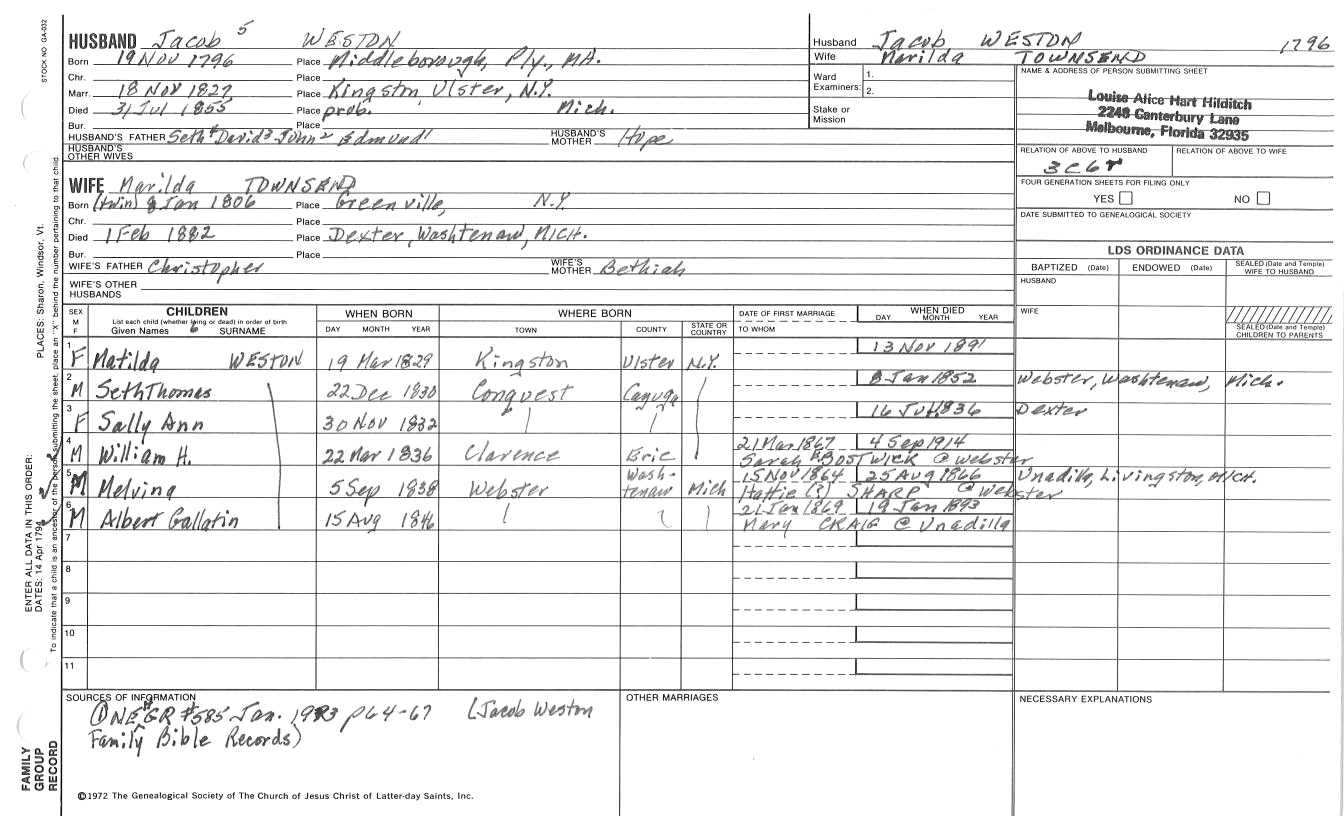 STOCK NO GA-032
HUSBAND Jacob 5 WESTON
Born 19 Nov 1796 Place Middleborough, Ply., MA.
Chr. Place
Marr. 18 Nov 1827 Place Kingston, Ulster, N.Y.
Died 31 Jul 1855 Place prob. Mich.
Bur. Place
HUSBAND'S FATHER Seth4 David3 John2 Edmund1 HUSBAND'S MOTHER Hope
HUSBAND'S OTHER WIVES
WIFE Marilda TOWNSEND
Born (twin) 8 Jan 1806 Place Greenville, N.Y.
Chr. Place
Died 1 Feb 1882 Place Dexter, Washtenaw, MICH.
Bur. Place
WIFE'S FATHER Christopher WIFE'S MOTHER Bethiah
WIFE'S OTHER HUSBANDS
Husband Jacob WESTON 1796
Wife Marilda TOWNSEND
Ward Examiners: 1. 2.
Stake or Mission
NAME & ADDRESS OF PERSON SUBMITTING SHEET
Louise Alice Hart Hilditch
2248 Canterbury Lane
Melbourne, Florida 32935
RELATION OF ABOVE TO HUSBAND RELATION OF ABOVE TO WIFE
3C6r
FOUR GENERATION SHEETS FOR FILING ONLY
YES NO
DATE SUBMITTED TO GENEALOGICAL SOCIETY
LDS ORDINANCE DATA
BAPTIZED (Date) ENDOWED (Date) SEALED (Date and Temple) WIFE TO HUSBAND
HUSBAND
WIFE
SEALED (Date and Temple) CHILDREN TO PARENTS
SEX M F CHILDREN WHEN BORN WHERE BORN DATE OF FIRST MARRIAGE WHEN DIED
List each child (whether living or dead) in order of birth
Given Names 6 SURNAME DAY MONTH YEAR TOWN COUNTY STATE OR COUNTRY TO WHOM DAY MONTH YEAR
1 F Matilda WESTON 19 Mar 1829 Kingston Ulster N.Y. 13 Nov 1891
2 M Seth Thomas 22 Dec 1830 Conquest Cayuga 8 Jan 1852 Webster, Washtenaw, Mich.
3 F Sally Ann 30 Nov 1832 16 Jul 1836 Dexter
4 M William H. 22 Mar 1836 Clarence Eric 21 Mar 1867 4 Sep 1914
Sarah BOSTWICK @ Webster
5 M Melving 5 Sep 1838 Webster Wash-tenaw Mich 15 Nov 1864 25 Aug 1866 Unadilla, Livingston, MICH.
Hattie (?) SHARP @ Webster
6 M Albert Gallatin 15 Aug 1846 21 Jan 1869 19 Jan 1893
Mary CRAIG @ Unadilla
7
8
9
10
11
SOURCES OF INFORMATION OTHER MARRIAGES NECESSARY EXPLANATIONS
① NEHGR #585 Jan. 1993 p64-67 (Jacob Weston
Family Bible Records)
©1972 The Genealogical Society of The Church of Jesus Christ of Latter-day Saints, Inc.
FAMILY GROUP RECORD
ENTER ALL DATA IN THIS ORDER:
DATES: 14 Apr 1794
PLACES: Sharon, Windsor, Vt.
To indicate that a child is an ancestor of the person submitting the sheet, place an "X" behind the number pertaining to that child.